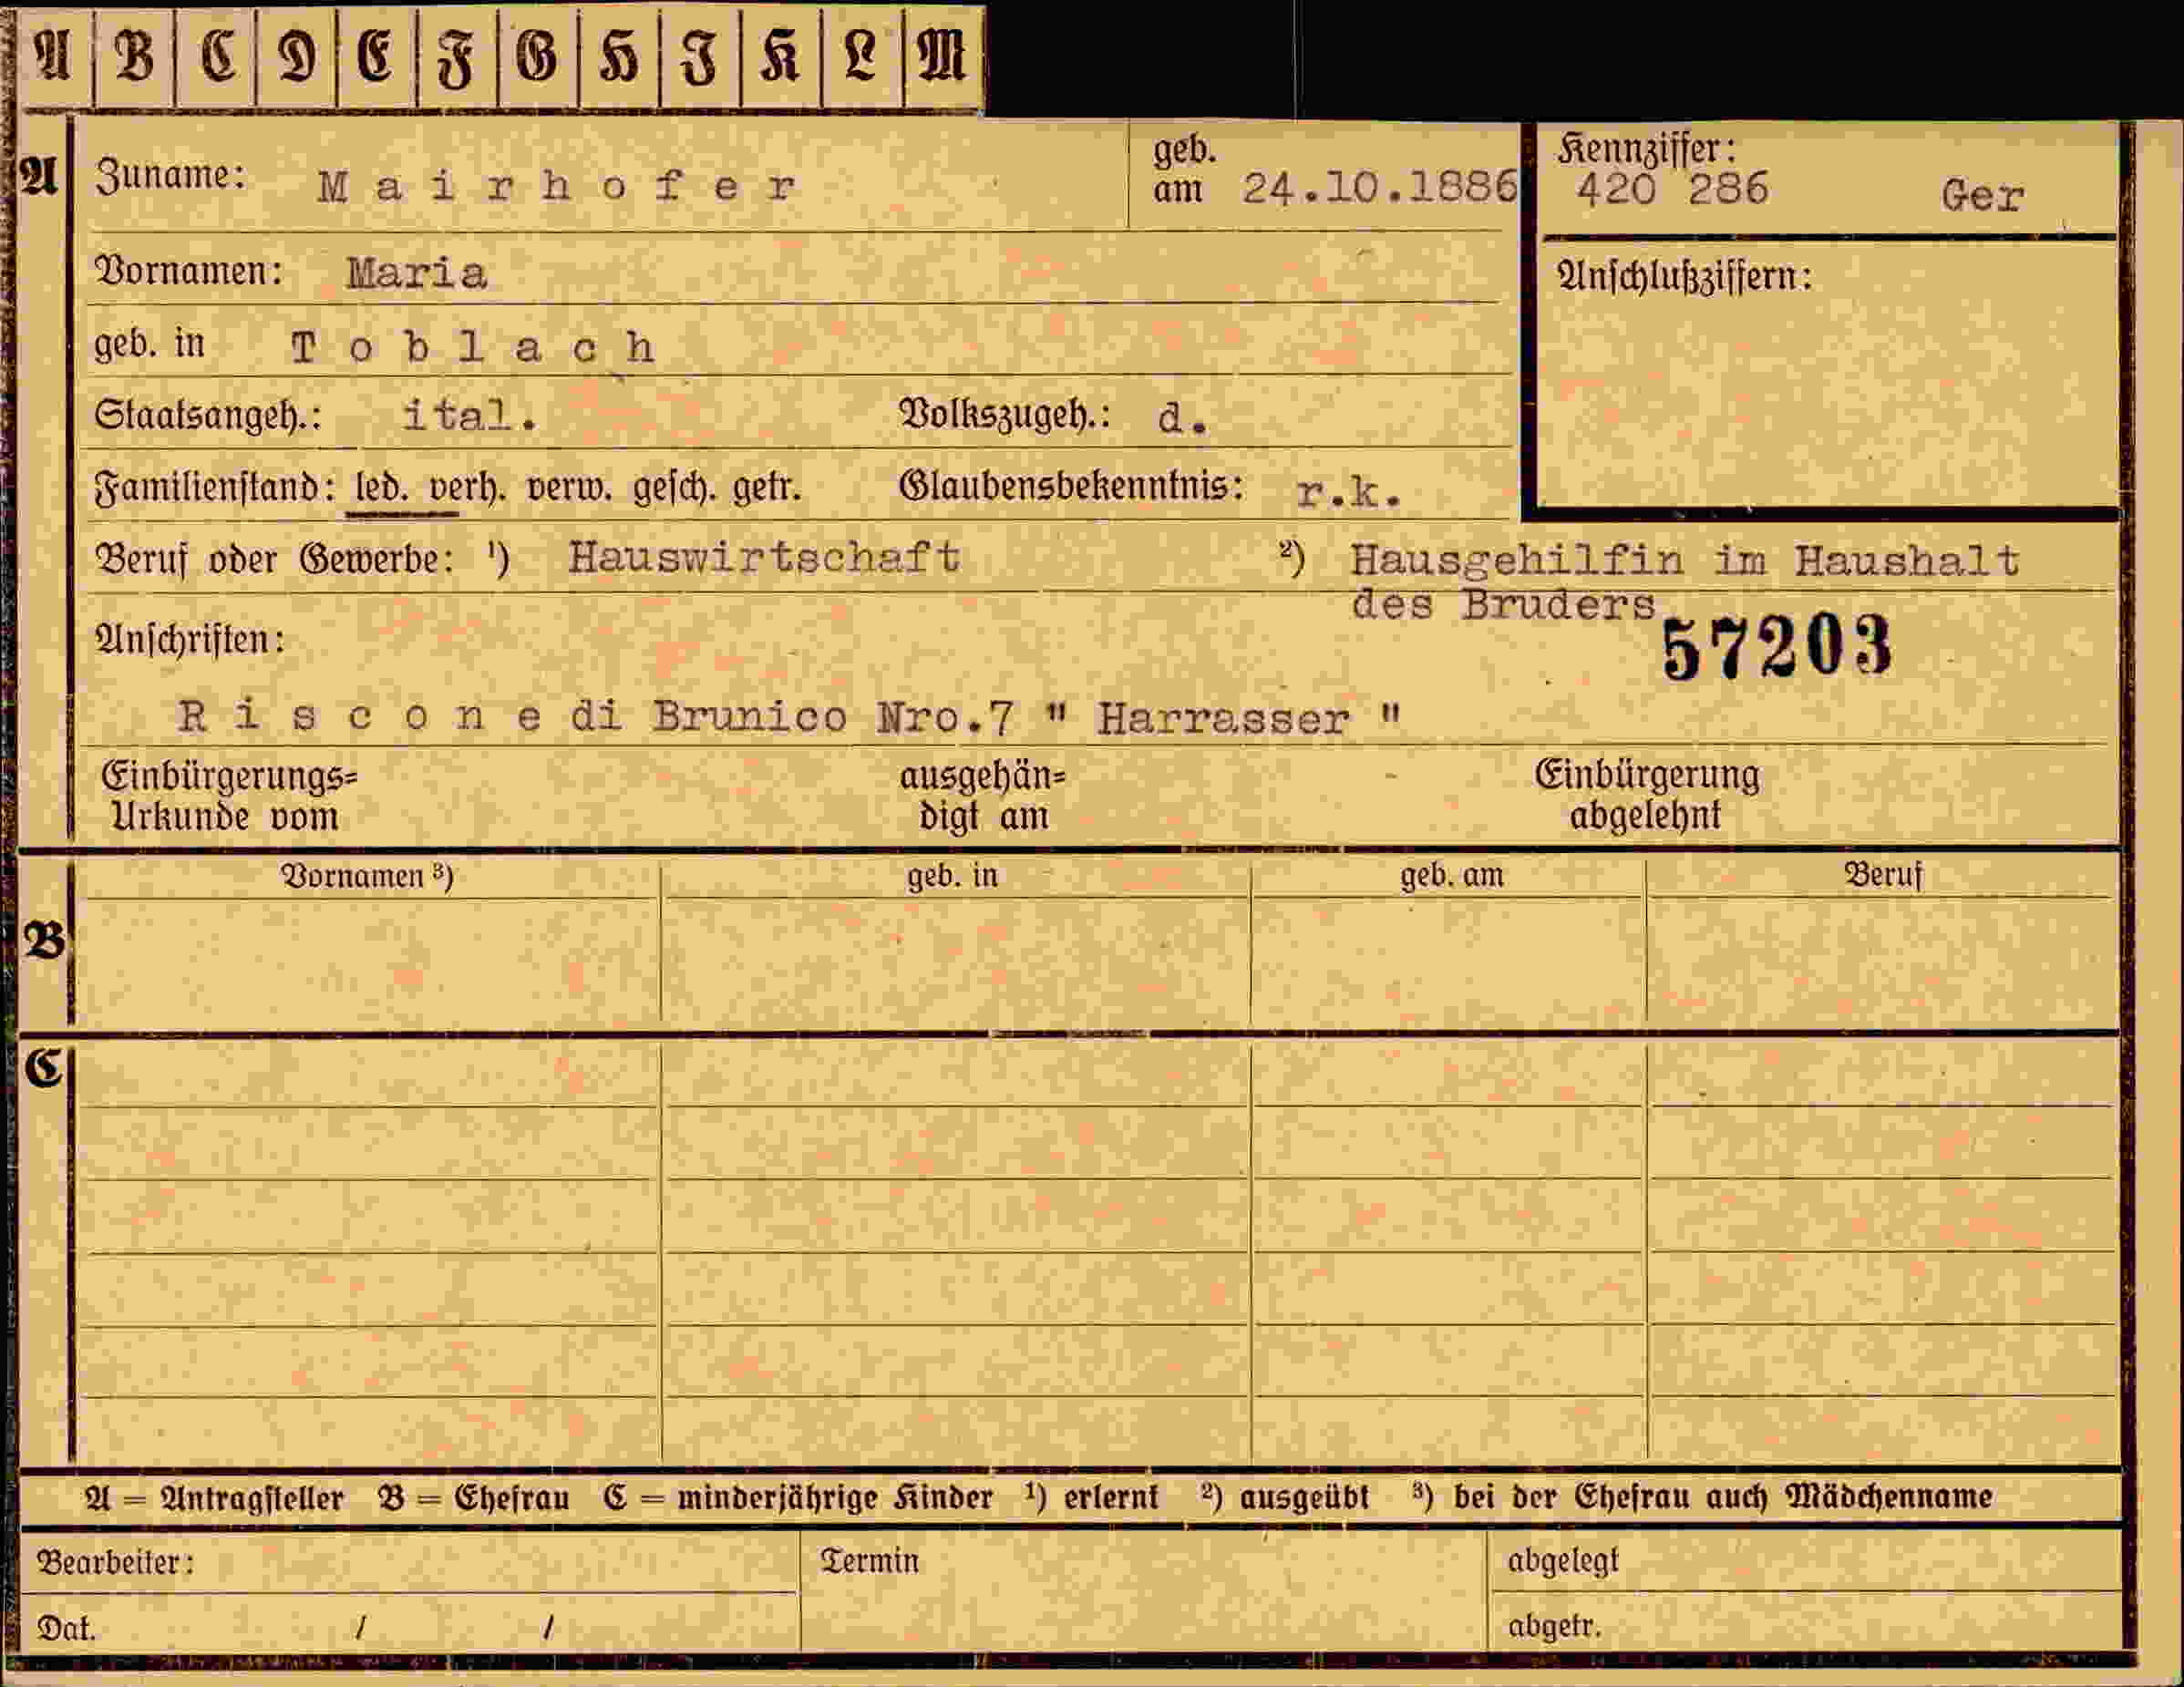 A B C D E F G H I K L M
A Zuname: Mairhofer geb. am 24.10.1886 Kennziffer: 420 286 Ger
Vornamen: Maria Anschlußziffern:
geb. in Toblach
Staatsangeh.: ital. Volkszugeh.: d.
Familienstand: led. verh. verw. gesch. getr. Glaubensbekenntnis: r.k.
Beruf oder Gewerbe: ¹) Hauswirtschaft ²) Hausgehilfin im Haushalt
des Bruders
Anschriften: 57203
Riscone di Brunico Nro.7 " Harrasser "
Einbürgerungs= ausgehän= Einbürgerung
Urkunde vom digt am abgelehnt
Vornamen ³) geb. in geb. am Beruf
B
C
A = Antragsteller B = Ehefrau C = minderjährige Kinder ¹) erlernt ²) ausgeübt ³) bei der Ehefrau auch Mädchenname
Bearbeiter: Termin abgelegt
Dat. / / abgetr.